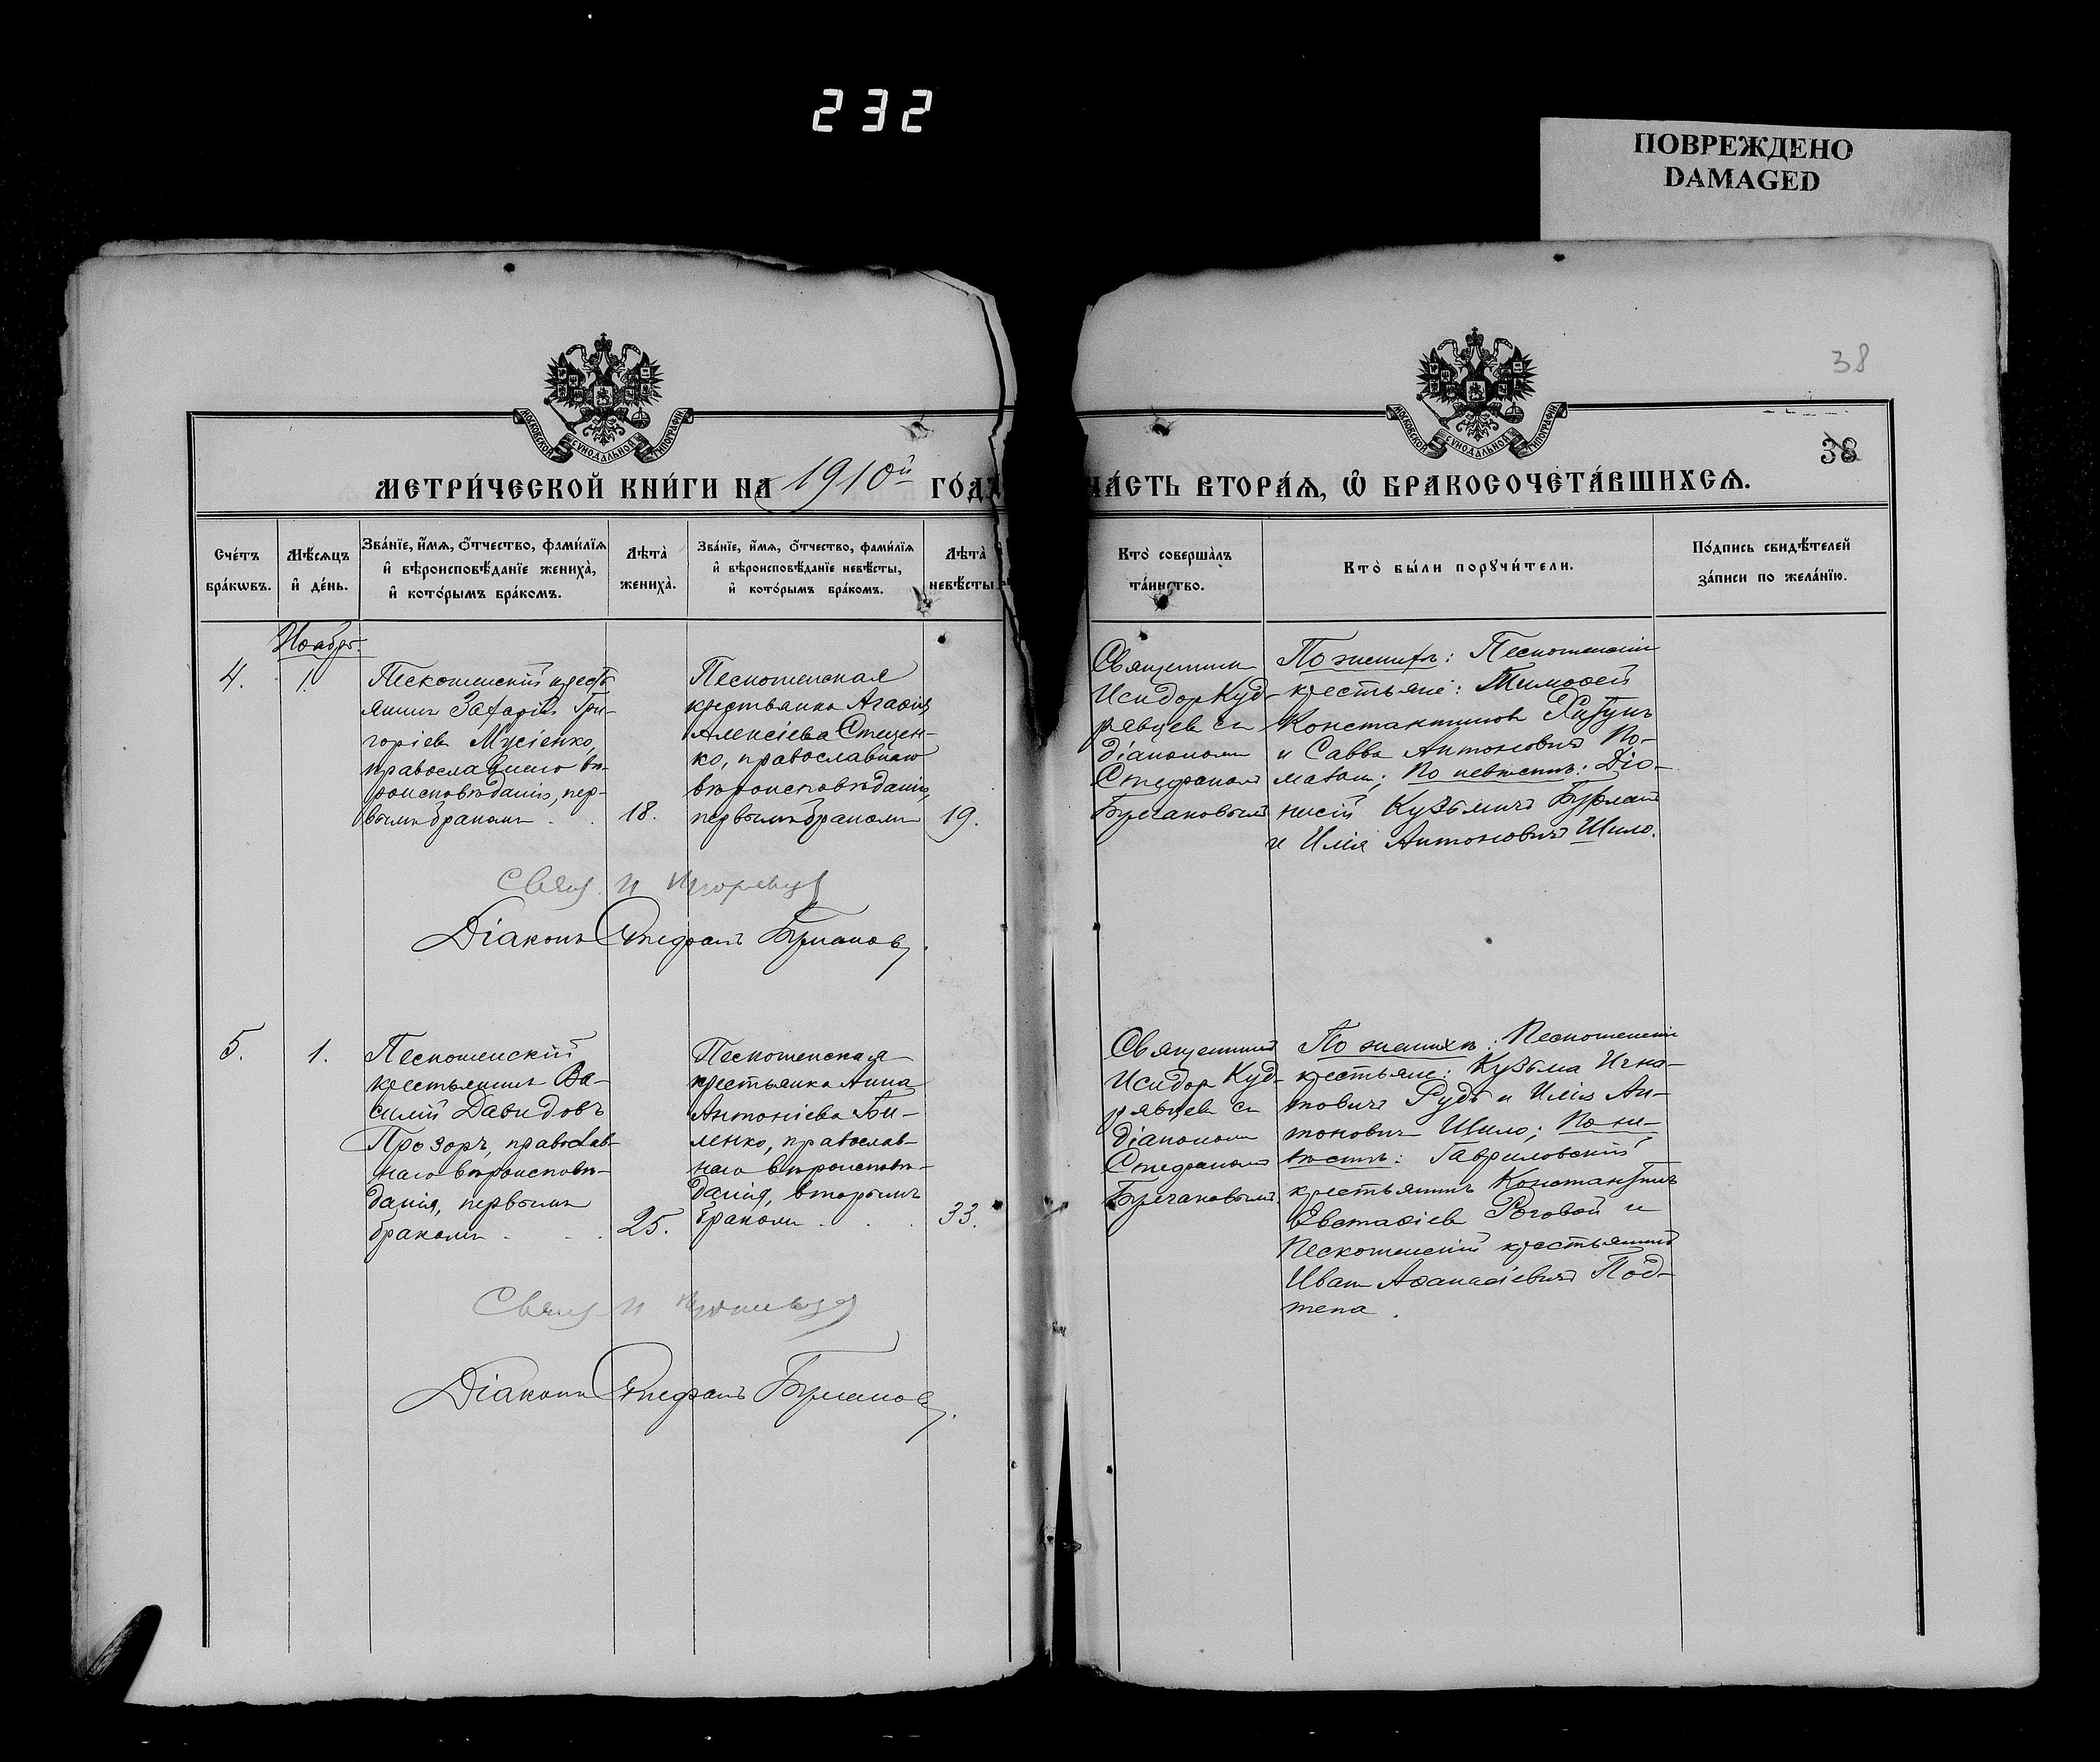 232
ПОВРЕЖДЕНО
DAMAGED
38
38
МОСКОВСКОЙ СѴНОДАЛЬНОЙ ТИПОГРАФІИ
МОСКОВСКОЙ СѴНОДАЛЬНОЙ ТИПОГРАФІИ
МЕТРИ́ЧЕСКОЙ КНИ́ГИ НА 1910й ГО́ДЪ
ЧА́СТЬ ВТОРА́Ѧ, Ѡ҆ БРАКОСОЧЕТА́ВШИХСѦ.
Сче́тъ
бра́кѡвъ.
Мѣ́сѧцъ
и҆ де́нь.
Зва́нїе, и҆́мѧ, ѻ҆́тчество, фами́лїѧ
и҆ вѣроисповѣ́данїе жениха̀,
и҆ кото́рымъ бра́комъ.
Лѣта̀
жениха̀.
Зва́нїе, и҆́мѧ, ѻ҆́тчество, фами́лїѧ
и҆ вѣроисповѣ́данїе невѣ́сты,
и҆ кото́рымъ бра́комъ.
Лѣта̀
невѣ́сты.
Кто̀ соверша́лъ
та́инство.
Кто̀ бы́ли порꙋчи́тели.
По́дпись свидѣ́телей
за́писи по жела́нїю.
Ноябрь.
4.
1.
Пескошенскій кресть
янинъ Захарій Гри-
горіевъ Мусіенко,
православнаго вѣ-
роисповѣданія, пер-
вымъ бракомъ . .
18.
Пескошенская
крестьянка Агафія
Алексіева Стецен-
ко, православнаго
вѣроисповѣданія,
первымъ бракомъ
19.
Священникъ
Исидоръ Куд-
рявцевъ съ
діакономъ
Стефаномъ
По женихѣ: Пескошенскіе
крестьяне: Тимофей
Константиновъ
и Савва Антоновичъ По-
По невѣстѣ: Діо-
нисій Кузьмичъ Бурлай
и Илія Антоновичъ Шило.
Свящ. И Кудрявцев
Діаконъ Стефанъ
5.
1.
Пескошенскій
крестьянинъ Ва-
силій Давидовъ
Прозоръ, православ-
наго вѣроисповѣ-
данія, первымъ
бракомъ . . .
25.
Пескошенская
крестьянка Анна
Антоніева Би-
ленко, православ-
наго вѣроисповѣ-
данія, вторымъ
бракомъ . . .
33.
Священникъ
Исидоръ Куд-
рявцевъ съ
діакономъ
Стефаномъ
По женихѣ: Пескошенскіе
крестьяне: Кузьма Игна-
товичъ Рудь и Илія Ан-
тоновичъ Шило; По не-
вѣстѣ: Гавриловскій
крестьянинъ Константинъ
Евстафіевъ Роговой и
Пескошенскій крестьянинъ
Иванъ Афанасіевичъ Под-
тепа.
Свящ. И Кудрявцев
Діаконъ Стефанъ